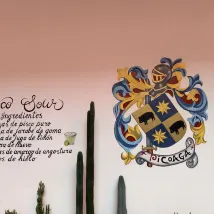 co Sour
ingredientes
zas de pisco puro
a de jarabe de goma
a de jugo de limón
ra de huevo
es de amargo de angostura
os de hielo
TOTORACA